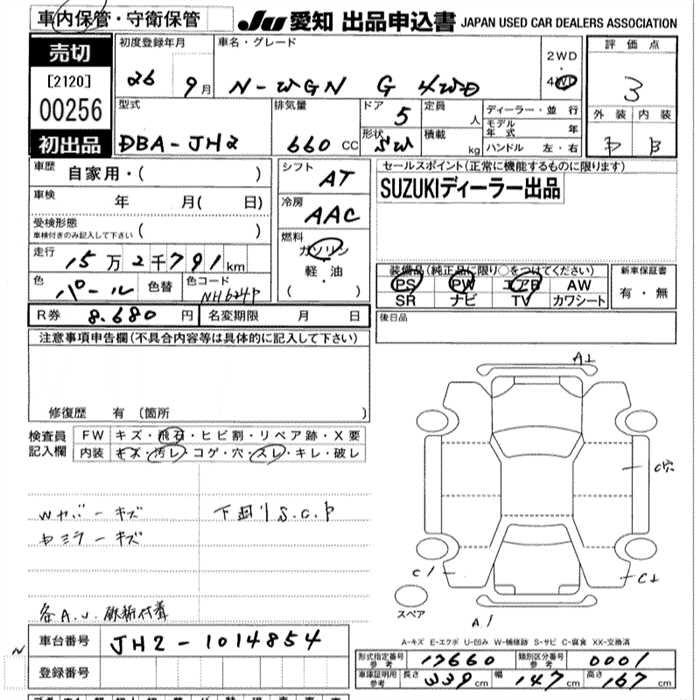 車内保管・守衛保管
JU 愛知 出品申込書 JAPAN USED CAR DEALERS ASSOCIATION
売切
[2120]
00256
初出品
初度登録年月
26 9月
車名・グレード
N-WGN G 4WD
2WD
・
4WD
評価点
3
外装 内装
B
型式
DBA-JH2
排気量
660 CC
ドア 5
形状 SW
定員 人
積載 kg
ディーラー・並行
モデル年式 年
ハンドル 左・右
車歴 自家用・( )
車検 年 月( 日)
受検形態
車検付きのみ記入して下さい ( )
走行 15万2千791km
色 パール 色替 色コード NH624P
シフト AT
冷房 AAC
燃料
ガソリン
軽・油
( )
セールスポイント(正常に機能するものに限ります)
SUZUKIディーラー出品
装備品(純正品に限り○をつけてください)
PS PW エアB AW
SR ナビ TV カワシート
新車保証書
有・無
R券 8.680 円 名変期限 月 日
後日品
注意事項申告欄(不具合内容等は具体的に記入して下さい)
修復歴 有 〔箇所 〕
検査員記入欄
FW キズ・飛石・ヒビ割・リペア跡・X要
内装 キズ・汚レ・コゲ・穴・スレ・キレ・破レ
Wカバーキズ
下廻りS.C.P
ミラーキズ
A⊥
C穴
C1
C⊥
スペア
A1
各A.U.
N
車台番号 JH2-1014854
登録番号
A-キズ E-エクボ U-凹み W-補修跡 S-サビ C-腐食 XX-交換済
形式指定番号 参考 17660 類別区分番号 参考 0001
車庫証明用 参考 長さ 339cm 幅 147cm 高さ 167cm